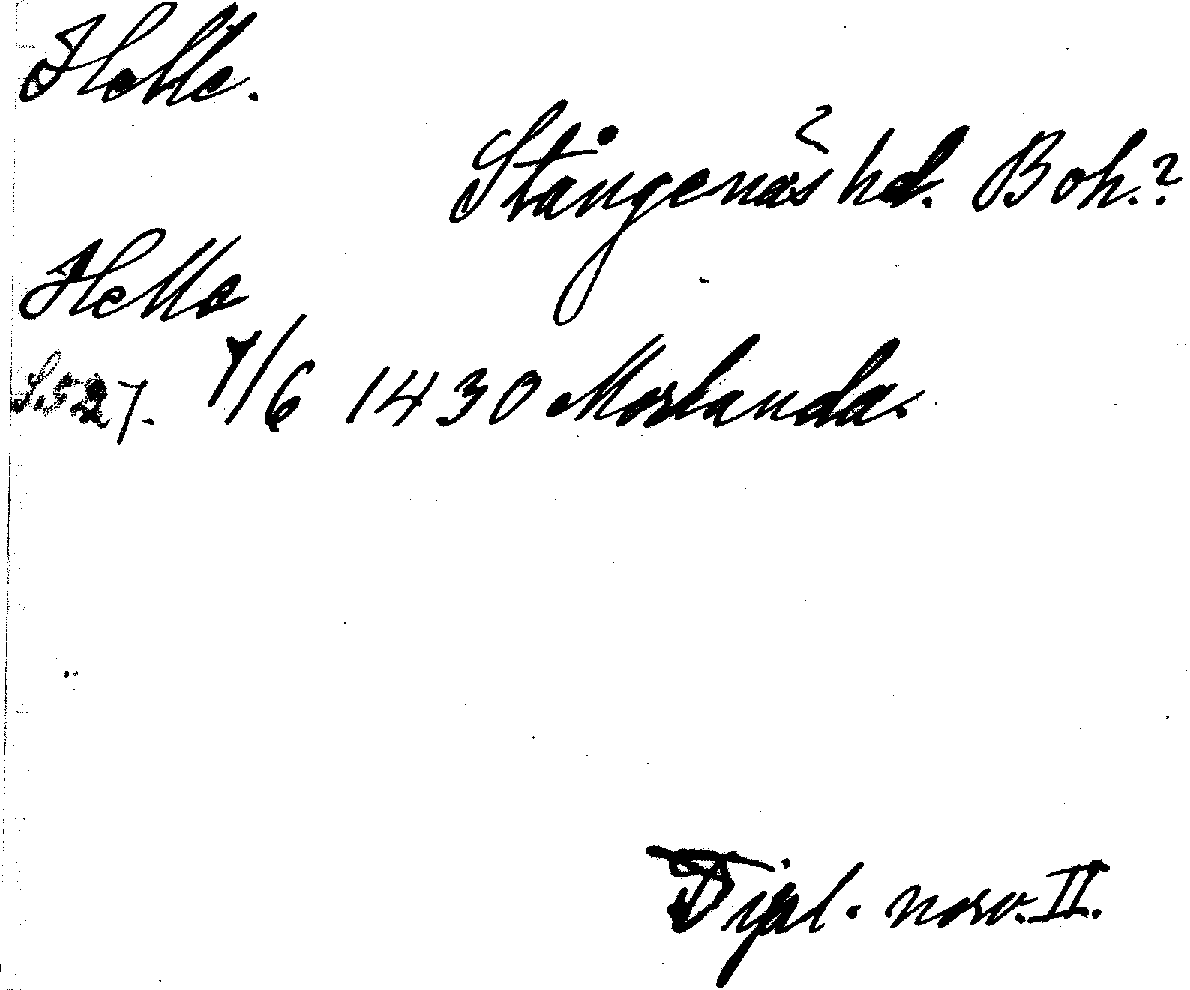 Helle.
Stångenäs hd. Boh.?
Hella
S. 527. 7/6 1430 Morlanda.
Dipl. norv. II.